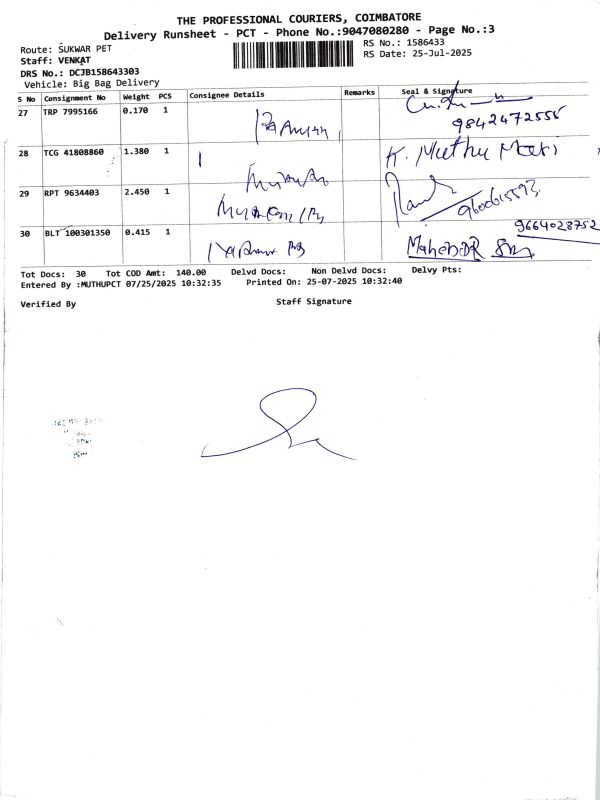 THE PROFESSIONAL COURIERS, COIMBATORE
Delivery Runsheet - PCT - Phone No.:9047080280 - Page No.:3
Route: SUKWAR PET
RS No.: 1586433
Staff: VENKAT
RS Date: 25-Jul-2025
DRS No.: DCJB158643303
Vehicle: Big Bag Delivery
S No Consignment No Weight PCS Consignee Details Remarks Seal & Signature
27 TRP 7995166 0.170 1
9842472555
28 TCG 41808860 1.380 1 K. Muthu Mari
29 RPT 9634403 2.450 1
9600615593
9664028752
30 BLT 100301350 0.415 1 Mahendar
Tot Docs: 30 Tot COD Amt: 140.00 Delvd Docs: Non Delvd Docs: Delvy Pts:
Entered By :MUTHUPCT 07/25/2025 10:32:35 Printed On: 25-07-2025 10:32:40
Verified By Staff Signature